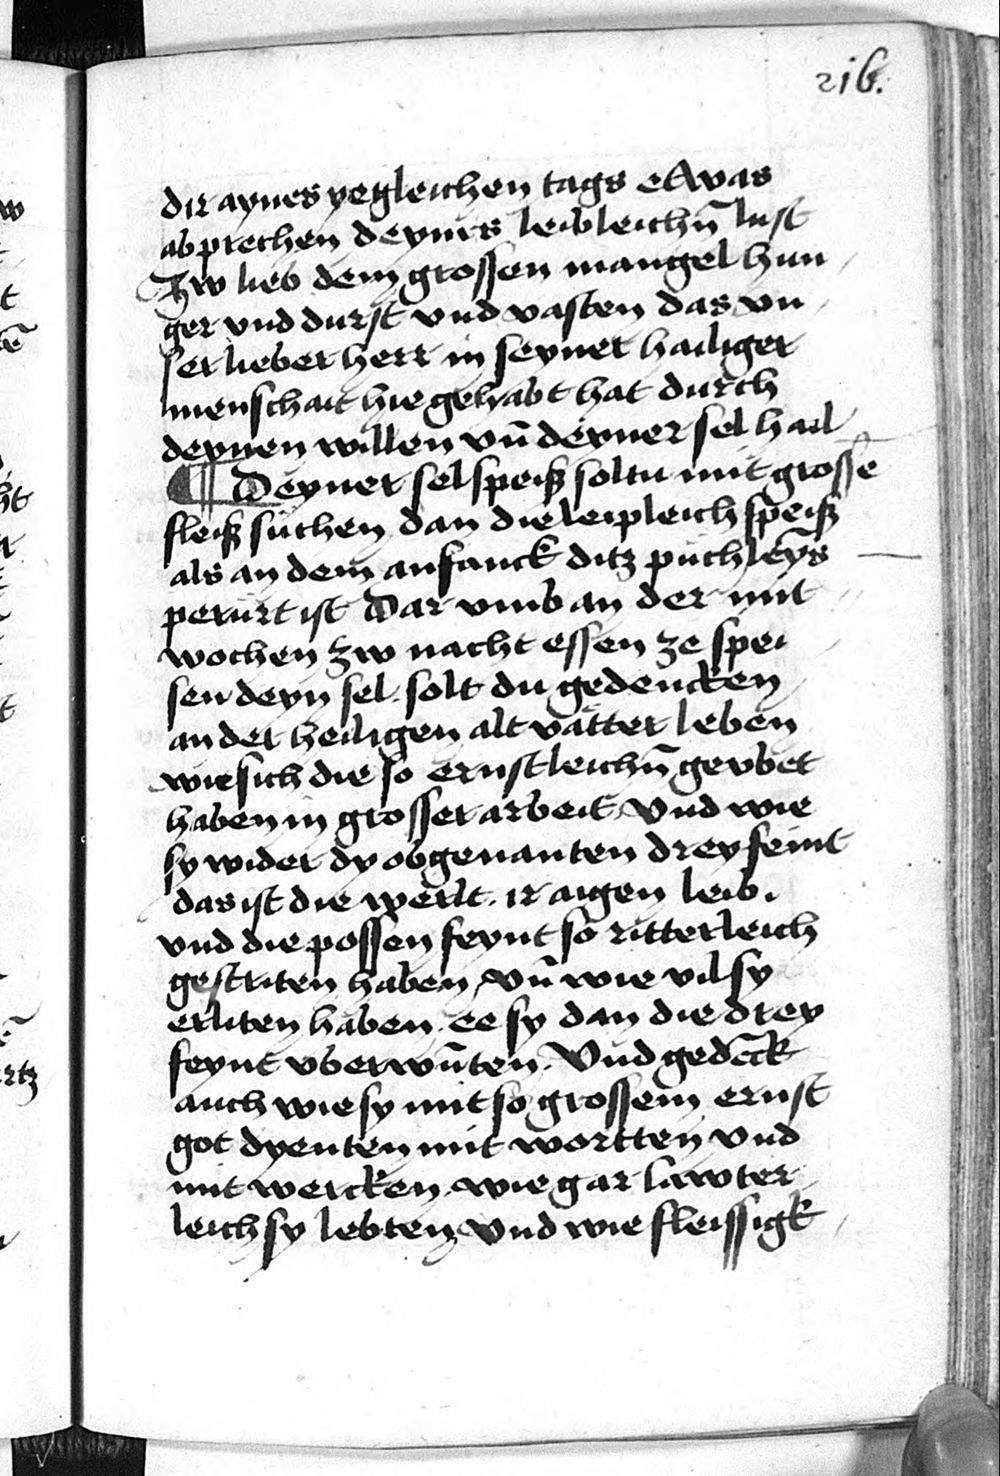 216.
dir aynes yegleichen tags etwas
abprechen deynes leibleichn̄ lust
Zw lieb dem grossen mangel hun
ger vnd durst vnd vasten das vn
ser lieber herr in seyner hailiger
menschait hie gehabt hat durch
deynen willen vn̄ deyner sel hail
¶ Deyner sel speiß soltu mit grosse
fleiß süchen dan die leipleich speiß
als an dem anfanck ditz püchleys
perürt ist Dar vmb an der mit
wochen zw nacht essen ze spei
sen deyn sel. solt du gedencken
an der heiligen alt vätter leben
wie sich die so ernstleichn̄ gevbet
haben in grosser arbeit Vnd wie
sy wider dy obgenanten drey feint
das ist die werlt. ir aigen leib.
vnd die possen feynt so ritterleich
gestriten haben vn̄ wie vil sy
erliten haben. ee sy dan die drey
feynt vberwūten. Vnd gedēck
auch wie sy mit so grossem ernst
got dyenten mit wortten vnd
mit wercken. wie gar lawter
leich sy lebten Vnd wie fleissigk
w
t
ht
t
rtz